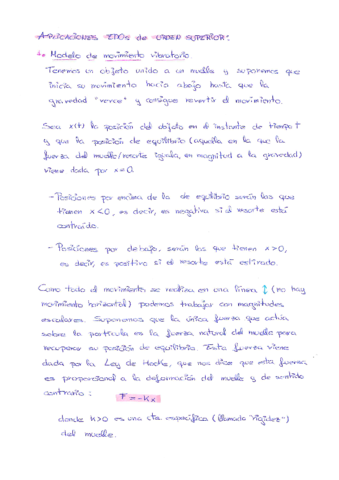 APLICACIONES EDOs de ORDEN SUPERIOR:
1.- Modelo de movimiento vibratorio.
Tenemos un objeto unido a un muelle y suponemos que
inicia su movimiento hacia abajo hasta que la
gravedad "vence" y consigue revertir el movimiento.
Sea x(t) la posición del objeto en el instante de tiempo t
y que la posición de equilibrio (aquella en la que la
fuerza del muelle/resorte iguala, en magnitud a la gravedad)
viene dada por x=0.
- Posiciones por encima de la de equilibrio serán las que
tienen x<0, es decir, es negativa si el resorte está
contraído.
- Posiciones por debajo, serán las que tienen x>0,
es decir, es positivo si el resorte está estirado.
Como todo el movimiento se realiza en una línea ↕ (no hay
movimiento horizontal) podemos trabajar con magnitudes
escalares. Suponemos que la única fuerza que actúa
sobre la partícula es la fuerza natural del muelle para
recuperar su posición de equilibrio. Esta fuerza viene
dada por la Ley de Hooke, que nos dice que esta fuerza
es proporcional a la deformación del muelle y de sentido
contrario:
F = -Kx
donde K>0 es una cte específica (llamada "rigidez")
del muelle.